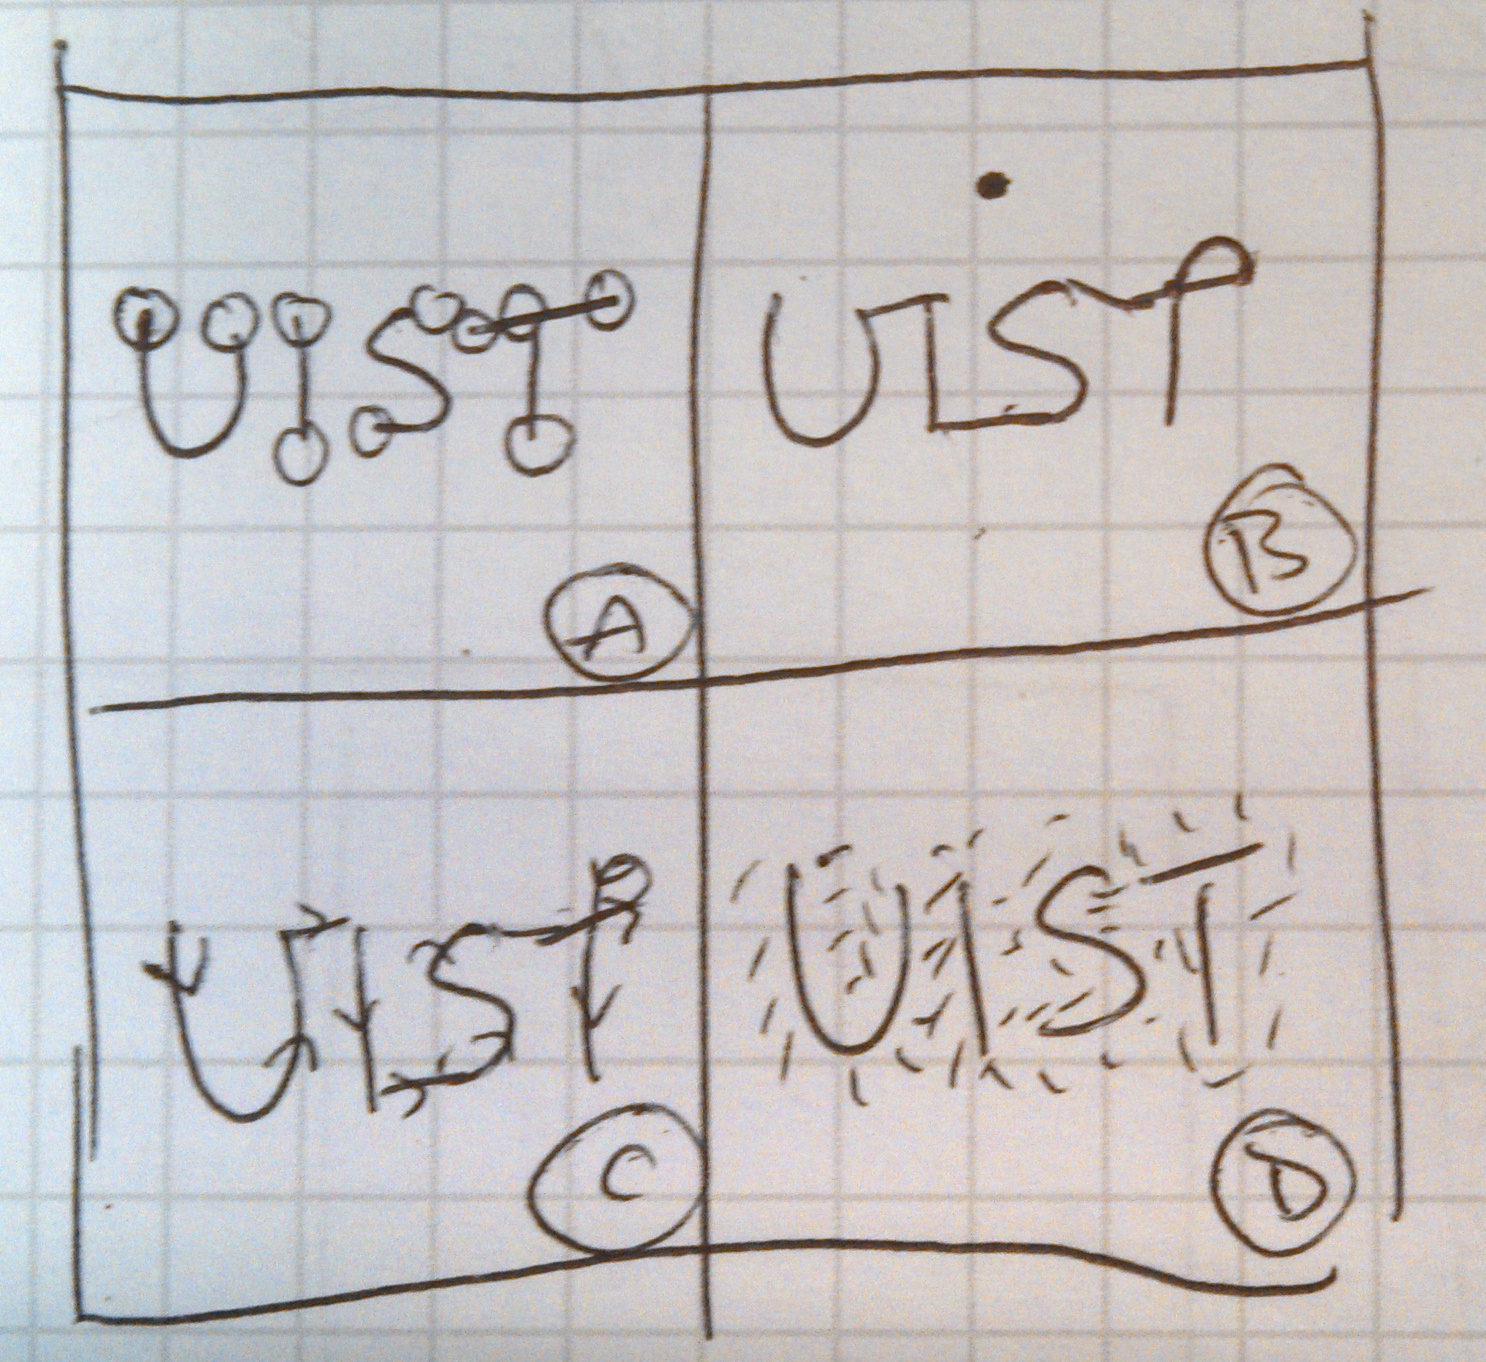 UIST
A
UIST
B
UIST
C
UIST
D